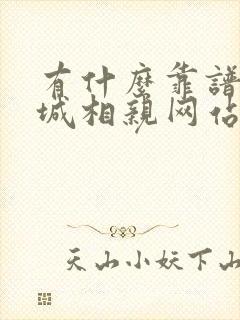 有什麼靠譜
城相親网佔
天山小妖下山